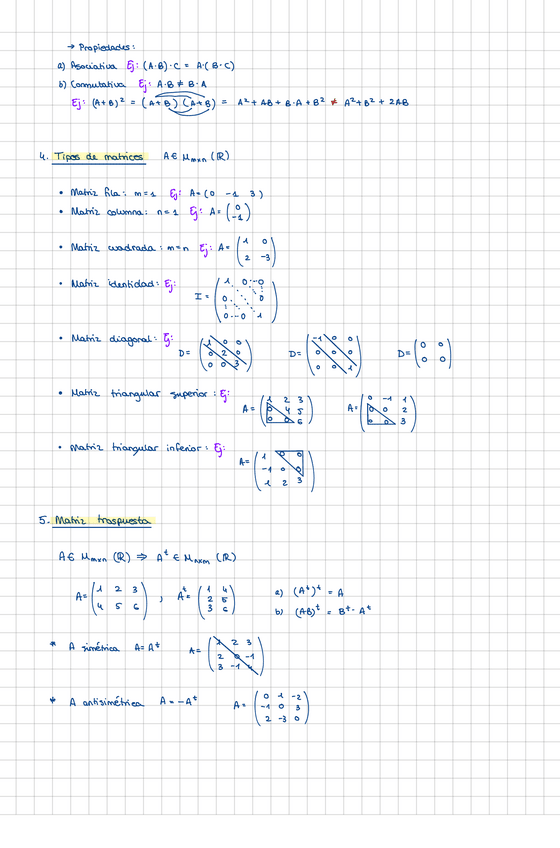 → Propiedades:
a) Asociativa Ej: (A·B)·C = A·(B·C)
b) Conmutativa Ej: A·B ≠ B·A
Ej: (A+B)² = (A+B)(A+B) = A² + AB + B·A + B² ≠ A² + B² + 2AB
4. Tipos de matrices A ∈ Mmxn (ℝ)
• Matriz fila: m=1 Ej: A = (0 -1 3)
• Matriz columna: n=1 Ej: A = (0
-1)
• Matriz cuadrada: m=n Ej: A = (1 0
2 -3)
• Matriz identidad: Ej:
I = (1 0···0
0 0
0···0 1)
• Matriz diagonal: Ej:
D = (1 0 0
0 2 0
0 0 3) D = (-1 0 0
0 0 0
0 0 1) D = (0 0
0 0)
• Matriz triangular superior: Ej:
A = (1 2 3
0 4 5
0 0 6) A = (0 -1 1
0 0 2
0 0 3)
• Matriz triangular inferior: Ej:
A = (1 0 0
-1 0 0
1 2 3)
5. Matriz traspuesta
A ∈ Mmxn (ℝ) ⇒ Aᵗ ∈ Mnxm (ℝ)
A = (1 2 3
4 5 6) , Aᵗ = (1 4
2 5
3 6)
a) (Aᵗ)ᵗ = A
b) (AB)ᵗ = Bᵗ · Aᵗ
* A simétrica A = Aᵗ A = (1 2 3
2 0 -1
3 -1 )
* A antisimétrica A = -Aᵗ A = (0 1 -2
-1 0 3
2 -3 0)